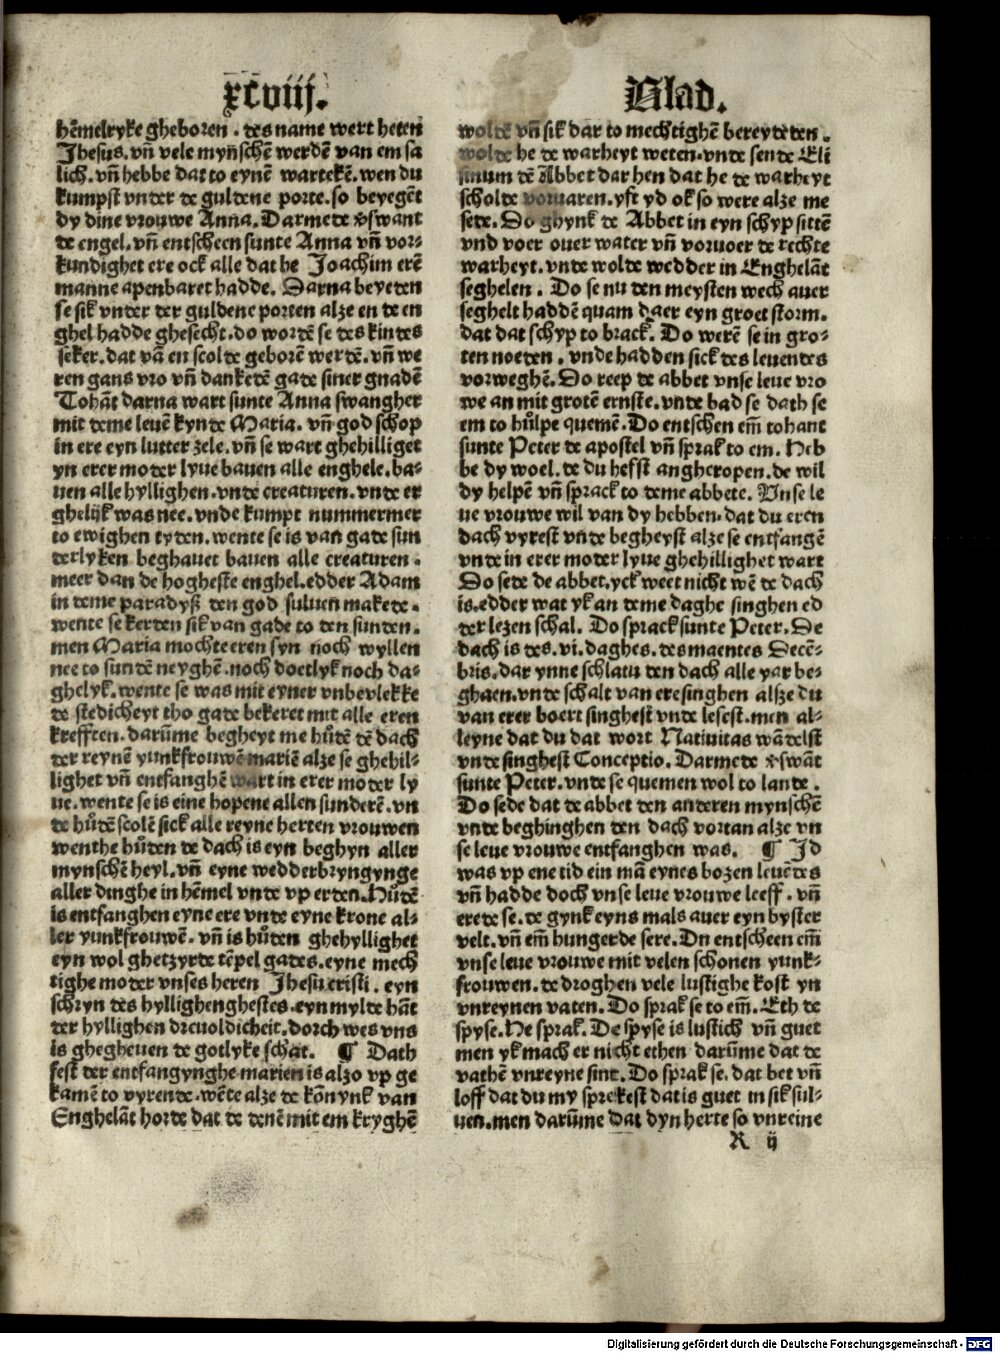 xcviij.
Blad.
hēmelryke gheboren . des name wert heten
Jhesus. vñ vele mynschē werdē van em sa
lich. vñ hebbe dat to eynē wartekē. wen du
kumpst vnder de guldene porte. so beyegēt
dy dine vrouwe Anna. Darmede vswant
de engel. vñ entscheen sunte Anna vñ vor⸗
kundighet ere ock alle dat he Joachim erē
manne apenbaret hadde. Darna beyeden
se sik vnder der guldene porten alze en de en
ghel hadde ghesecht. do wordē se des kindes
seker. dat vā en scolde geborē werdē. vñ we
ren gans vro vñ danketē gade siner gnadē
Tohāt darna wart sunte Anna swangher
mit deme leuē kynde Maria. vñ god schop
in ere eyn lutter zele. vñ se wart ghehilliget
yn erer moder lyue bauen alle enghele. ba⸗
uen alle hyllighen. vnde creaturen. vnde er
ghelijk was nee. vnde kumpt nummermer
to ewighen tyden. wente se is van gade sun
derlyken beghauet bauen alle creaturen .
meer dan de hogheste enghel. edder Adam
in deme paradyß den god suluen makede .
wente se kerden sik van gade to den sunden.
men Maria mochte eren syn noch wyllen
nee to sundē neyghē. noch doetlyk noch da⸗
ghelyk. wente se was mit eyner vnbevlekke
de stedicheyt tho gade bekeret mit alle eren
krefften. darūme begheyt me hůdē dē dach
der reynē yunkfrouwē mariē alze se ghehil⸗
lighet vñ entfanghē wart in erer moder ly
ue. wente se is eine hopene allen sunderē. vn
de hůdē scolē sick alle reyne herten vrouwen
wenthe hůden de dach is eyn beghyn aller
mynschē heyl. vñ eyne wedderbryngynge
aller dinghe in hēmel vnde vp erden. Hůdē
is entfanghen eyne ere vnde eyne krone al⸗
ler yunkfrouwē. vñ is hůden ghehyllighet
eyn wol ghetzyrde tēpel gades. eyne mech
tighe moder vnses heren Jhesu cristi . eyn
schryn des hyllighenghestes. eyn mylde hāt
der hyllighen dreuoldicheit. dorch wes vns
is ghegheuen de gotlyke schat. ¶ Dath
fest der entfangynghe marien is alzo vp ge
kamē to vyrende. wēte alze de kōnynk van
Enghelāt horde dat de denē mit em kryghē
woldē vñ sik dar to mechtighē bereydeden .
wolde he de warheyt weten. vnde sende Eli
sinum dē Abbet dar hen dat he de warheyt
scholde voruaren. yft yd ok so were alze me
sede. Do ghynk de Abbet in eyn schyp sittē
vnd voer ouer water vñ voruoer de rechte
warheyt. vnde wolde wedder in Enghelāt
seghelen . Do se nu den meysten wech auer
seghelt haddē quam daer eyn groet storm.
dat dat schyp to brack. Do werē se in gro⸗
ten noeden . vnde hadden sick des leuendes
vorweghē. Do reep de abbet vnse leue vro
we an mit grotē ernste. vnde bad se dath se
em to hůlpe quemē. Do entschen em̄ tohant
sunte Peter de apostel vñ sprak to em. Heb
be dy woel. de du hefst angheropen. de wil
dy helpē vñ sprack to deme abbete. Vnse le
ue vrouwe wil van dy hebben. dat du eren
dach vyrest vnde begheyst alze se entfangē
vnde in erer moder lyue ghehillighet wart
Do sede de abbet. yck weet nicht wē de dach
is. edder wat yk an deme daghe singhen ed
der lezen schal. Do sprack sunte Peter. De
dach is des. vi. daghes. des maentes Decē⸗
bris. dar ynne schlatu den dach alle yar be⸗
ghaen. vnde schalt van ere singhen alsze du
van erer boert singhest vnde lesest. men al⸗
leyne dat du dat wort Natiuitas wādelst
vnde singhest Conceptio. Darmede vswāt
sunte Peter. vnde se quemen wol to lande .
Do sede dat de abbet den anderen mynschē
vnde beghinghen den dach vortan alze vn
se leue vrouwe entfanghen was. ¶ Id
was vp ene tid ein mā eynes bozen leuēdes
vñ hadde doch vnse leue vrouwe leeff . vñ
erede se. de gynk eyns mals auer eyn byster
velt. vñ em̄ hungerde sere. Dn entscheen em̄
vnse leue vrouwe mit velen schonen yunk⸗
frouwen. de droghen vele lustighe kost yn
vnreynen vaten. Do sprak se to em̄. Eth de
spyse. He sprak. De spyse is lustich vñ guet
men yk mach er nicht ethen darūme dat de
vathē vnreyne sint. Do sprak se. dat bet vñ
loff dat du my sprekest dat is guet in sik sůl⸗
uen. men darūme dat dyn herte so vnreine
R ij
Digitalisierung gefördert durch die Deutsche Forschungsgemeinschaft - DFG